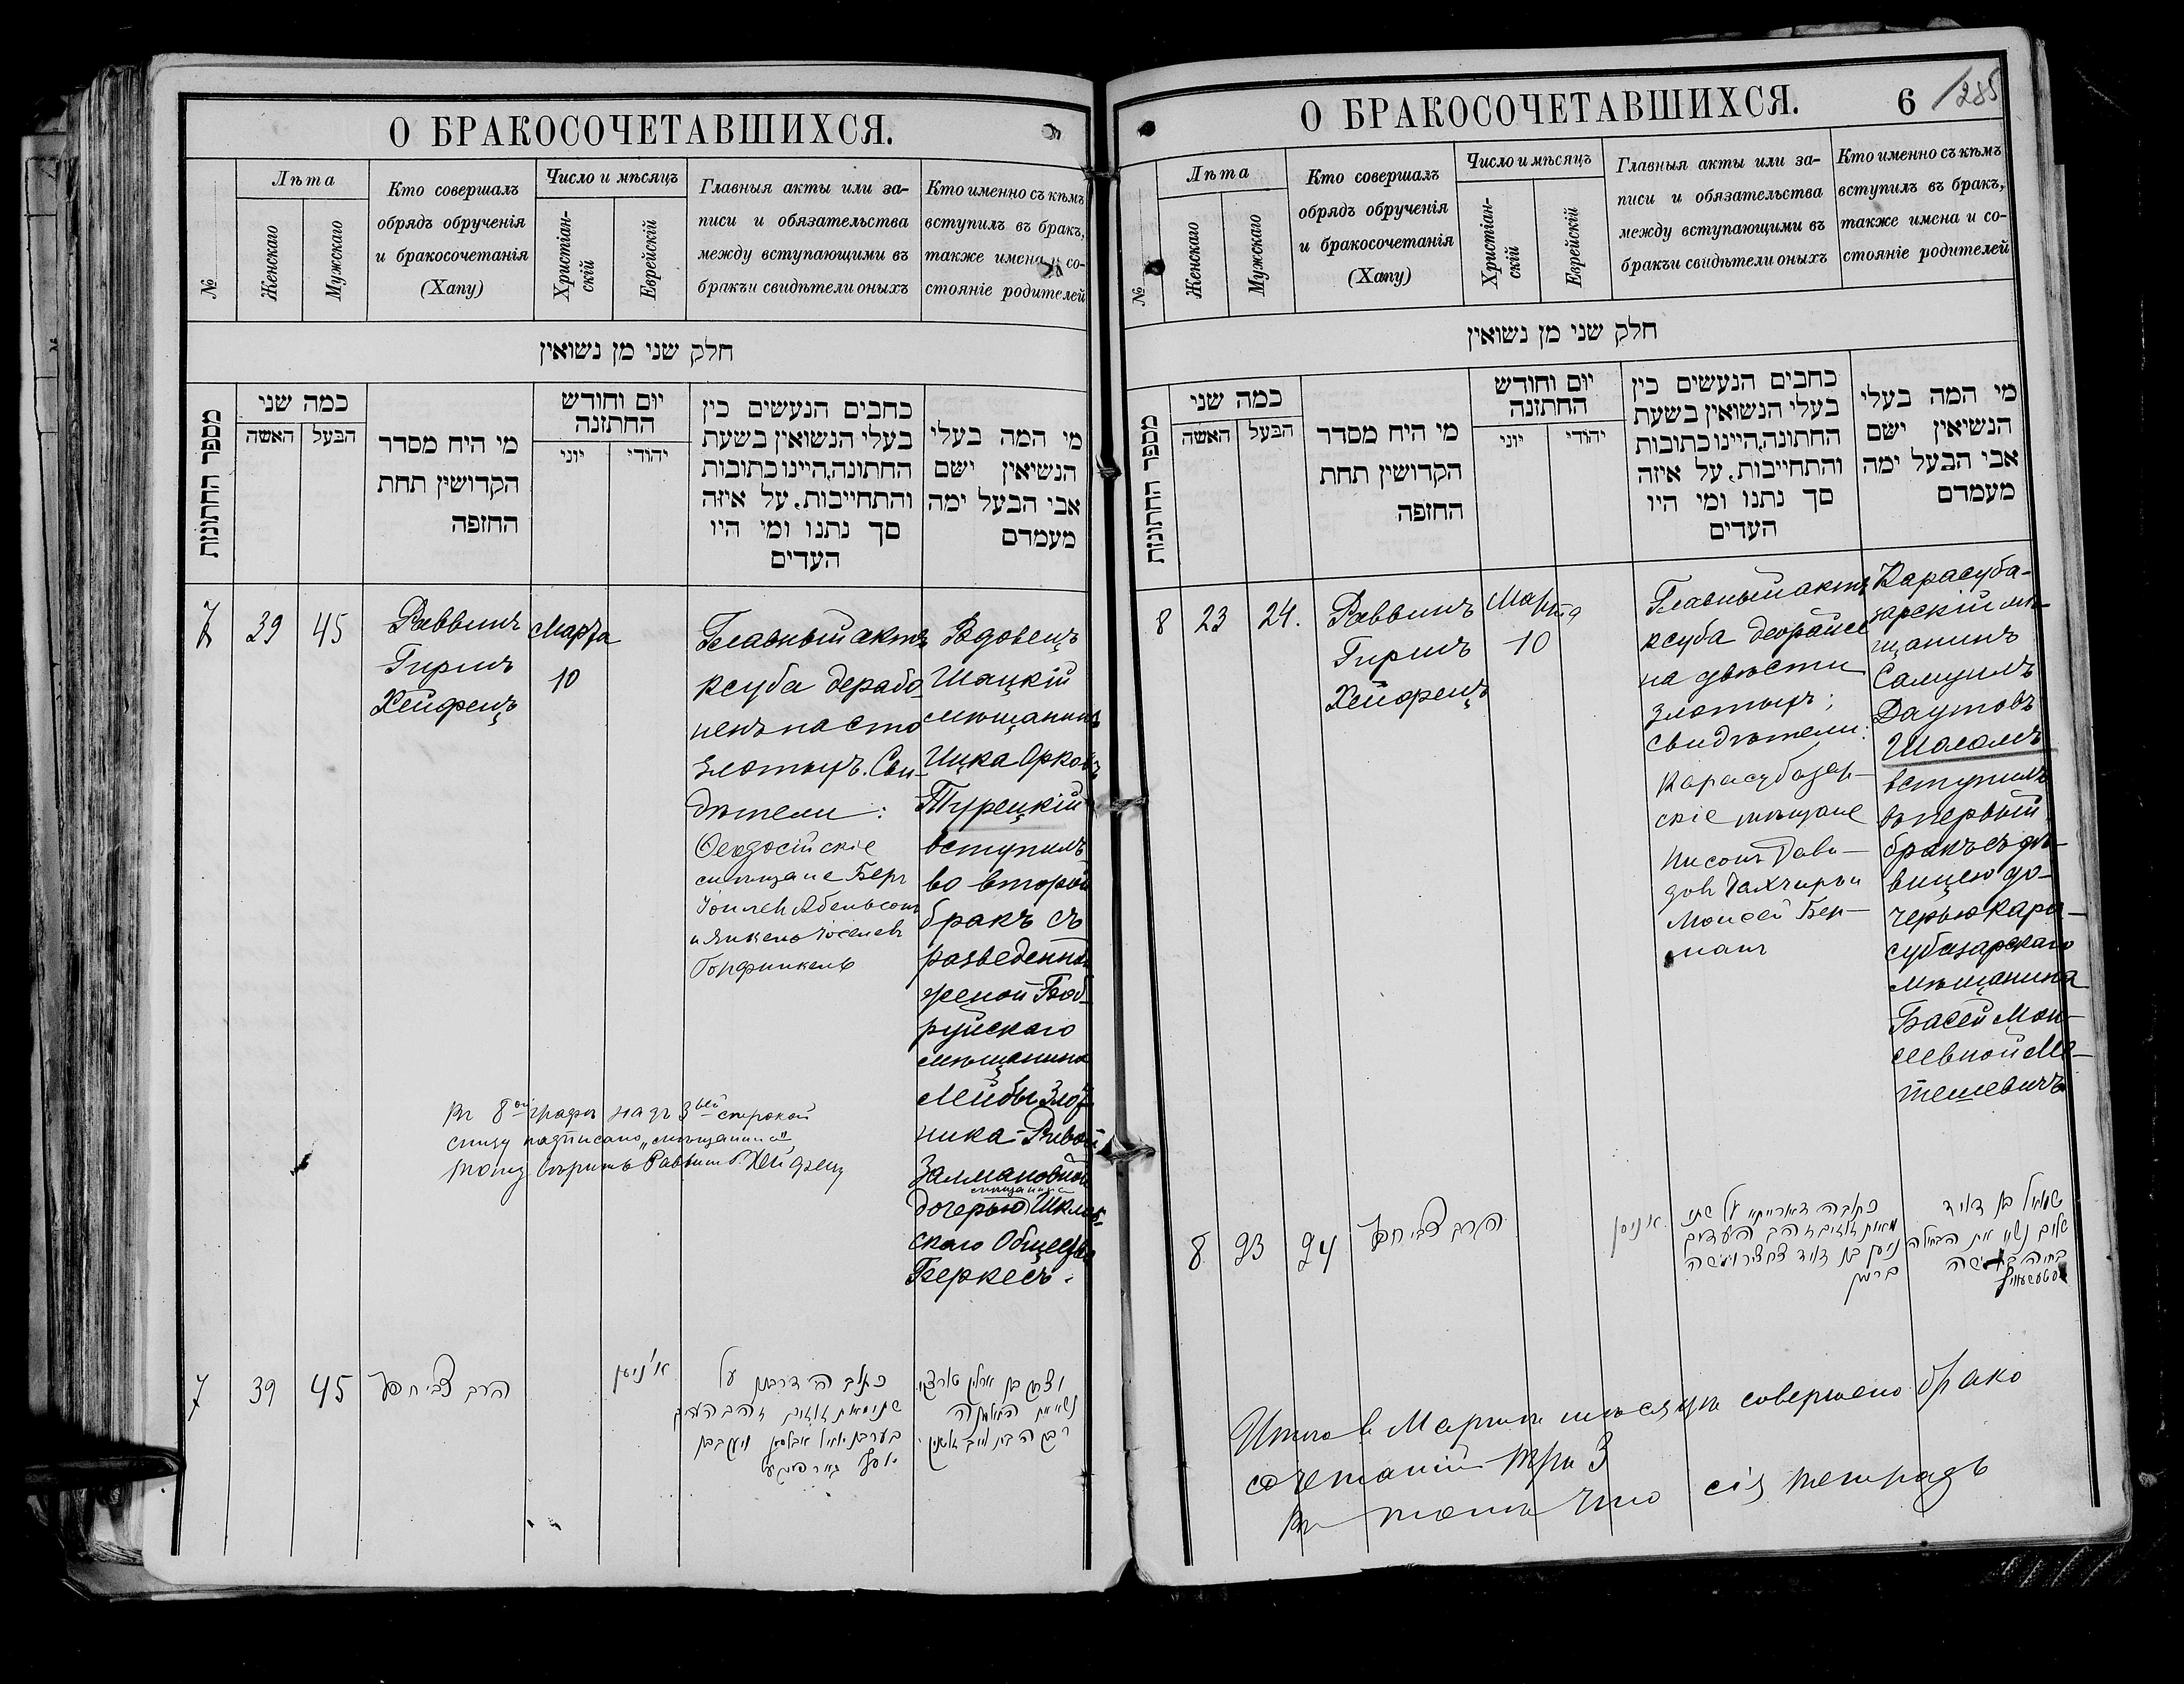 О БРАКОСОЧЕТАВШИХСЯ.
№
Лѣта
Женскаго
Мужскаго
Кто совершалъ
обрядъ обрученія
и бракосочетанія
(Хапу)
Число и мѣсяцъ
Христіан-
скій
Еврейскій
Главныя акты или за-
писи и обязательства
между вступающими въ
бракъи свидѣтели оныхъ
Кто именно съ кѣмъ
вступилъ въ бракъ,
также имена и со-
стояніе родителей
חלק שני מן נשואין
מספר החתונות
כמה שני
האשה
הבעל
מי היח מסדר
הקדושין תחת
החזפה
יום וחודש
החתזנה
יוני
יהודי
כחבים הנעשים כין
בעלי הנשואין בשעת
החתונה,היינו כתובות
והתחייבות, על איזה
סך נתנו ומי היו
העדים
מי המה בעלי
הנשיאין ישם
אבי הבעל ימה
מעמדם
7
39
45
Раввинъ
Гиршъ
Хейфецъ
Марта
10
Главный актъ
ксуба дерабо
ненъ на сто
злотыхъ. Сви-
дѣтели:
Ѳеодосійскіе
мѣщане Беръ
Абельсонъ
и Янкель Іоселев
Горфинкель
Вдовецъ
Шацкій
мѣщанинъ
Ицка Орковъ
Турецкій
вступилъ
во второй
бракъ съ
разведенной
женой Боб-
руйскаго
мѣщанина
Лейбы Злот-
ника - Ривой
Залмановной
мѣщанина
дочерью Шклов-
скаго Общества
Беркесъ.
Въ 8ой графѣ надъ 3ьей строкой
снизу надписано „мѣщанина"
тому вѣрить Раввинъ Г. Хейфецъ
7
39
45
הרב צבי חפץ
א' ניסן
О БРАКОСОЧЕТАВШИХСЯ.
6 / 285
№
Лѣта
Женскаго
Мужскаго
Кто совершалъ
обрядъ обрученія
и бракосочетанія
(Хапу)
Число и мѣсяцъ
Христіан-
скій
Еврейскій
Главныя акты или за-
писи и обязательства
между вступающими въ
бракъи свидѣтели оныхъ
Кто именно съ кѣмъ
вступилъ въ бракъ,
также имена и со-
стояніе родителей
חלק שני מן נשואין
מספר החתונות
כמה שני
האשה
הבעל
מי היח מסדר
הקדושין תחת
החזפה
יום וחודש
החתזנה
יוני
יהודי
כחבים הנעשים כין
בעלי הנשואין בשעת
החתונה,היינו כתובות
והתחייבות, על איזה
סך נתנו ומי היו
העדים
מי המה בעלי
הנשיאין ישם
אבי הבעל ימה
מעמדם
8
23
24.
Раввинъ
Гиршъ
Хейфецъ
Марта
10
Главный актъ
ксуба деорайсе
на двѣсти
злотыхъ;
свидѣтели:
Карасубазар-
скіе мѣщане
Нисонъ Дави-
довъ
Моисей Бер-
манъ
Карасуба-
зарскій мѣ-
щанинъ
Самуилъ
Даутовъ
Шоломъ
вступилъ
въ первый
бракъ съ дѣ-
вицею до-
черью Кара-
субазарскаго
мѣщанина
Басей Мои-
сеевной Ме-
тешевичъ
8
23
24
הרב צבי חפץ
א ניסן
כתובה דארייתא על שתי
מאות זהב העדים
ניסן בן דוד ומשה
ברמן
שמואל בן דוד
שלום נשא את הבתולה
בת משה
Итого въ Мартѣ мѣсяцѣ совершено брако
сочетаній три 3
въ томъ что сія тетрадь